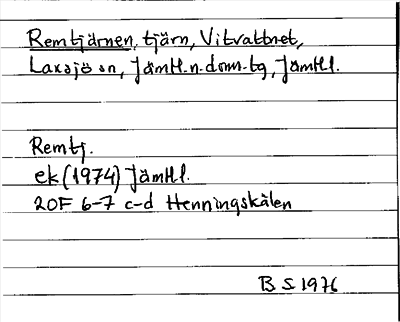 Remtjärnen, tjärn, Vitvattnet,
Laxsjö sn, Jämtl.n.doms-tg, Jämtl.
Remtj.
ek (1974) Jämtl.
20F 6-7 c-d Henningskälen
B S 1976